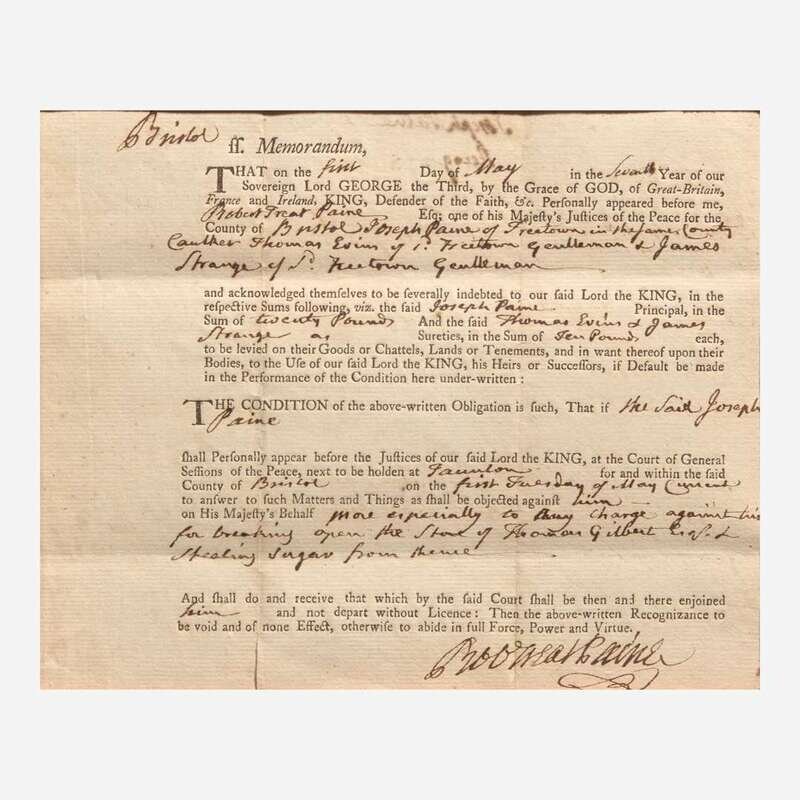 Bristol ſſ. Memorandum,
THAT on the first Day of May in the Seventh Year of our
Sovereign Lord GEORGE the Third, by the Grace of GOD, of Great-Britain,
France and Ireland, KING, Defender of the Faith, &c. Perſonally appeared before me,
Robert Treat Paine Eſq; one of his Majeſty's Juſtices of the Peace for the
County of Bristol Joseph Paine of Freetown in the same County
Thomas Evins of sd. Freetown Gentleman & James
Strange of Sd. Freetown Gentleman
and acknowledged themſelves to be ſeverally indebted to our ſaid Lord the KING, in the
reſpective Sums following, viz. the ſaid Joseph Paine Principal, in the
Sum of twenty Pounds And the ſaid Thomas Evins & James
Strange as Sureties, in the Sum of Ten Pounds each,
to be levied on their Goods or Chattels, Lands or Tenements, and in want thereof upon their
Bodies, to the Uſe of our ſaid Lord the KING, his Heirs or Succeſſors, if Default be made
in the Performance of the Condition here under-written :
THE CONDITION of the above-written Obligation is ſuch, That if the said Joseph
Paine
ſhall Perſonally appear before the Juſtices of our ſaid Lord the KING, at the Court of General
Seſſions of the Peace, next to be holden at Taunton for and within the ſaid
County of Bristol on the first Tuesday of May Current
to anſwer to ſuch Matters and Things as ſhall be objected againſt him
on His Majeſty's Behalf more especially to any Charge against
for breaking open the Store of Thomas Gilbert Esqr. &
Stealing Sugar from thence
And ſhall do and receive that which by the ſaid Court ſhall be then and there enjoined
him and not depart without Licence : Then the above-written Recognizance to
be void and of none Effect, otherwiſe to abide in full Force, Power and Virtue,
Rob Treat Paine